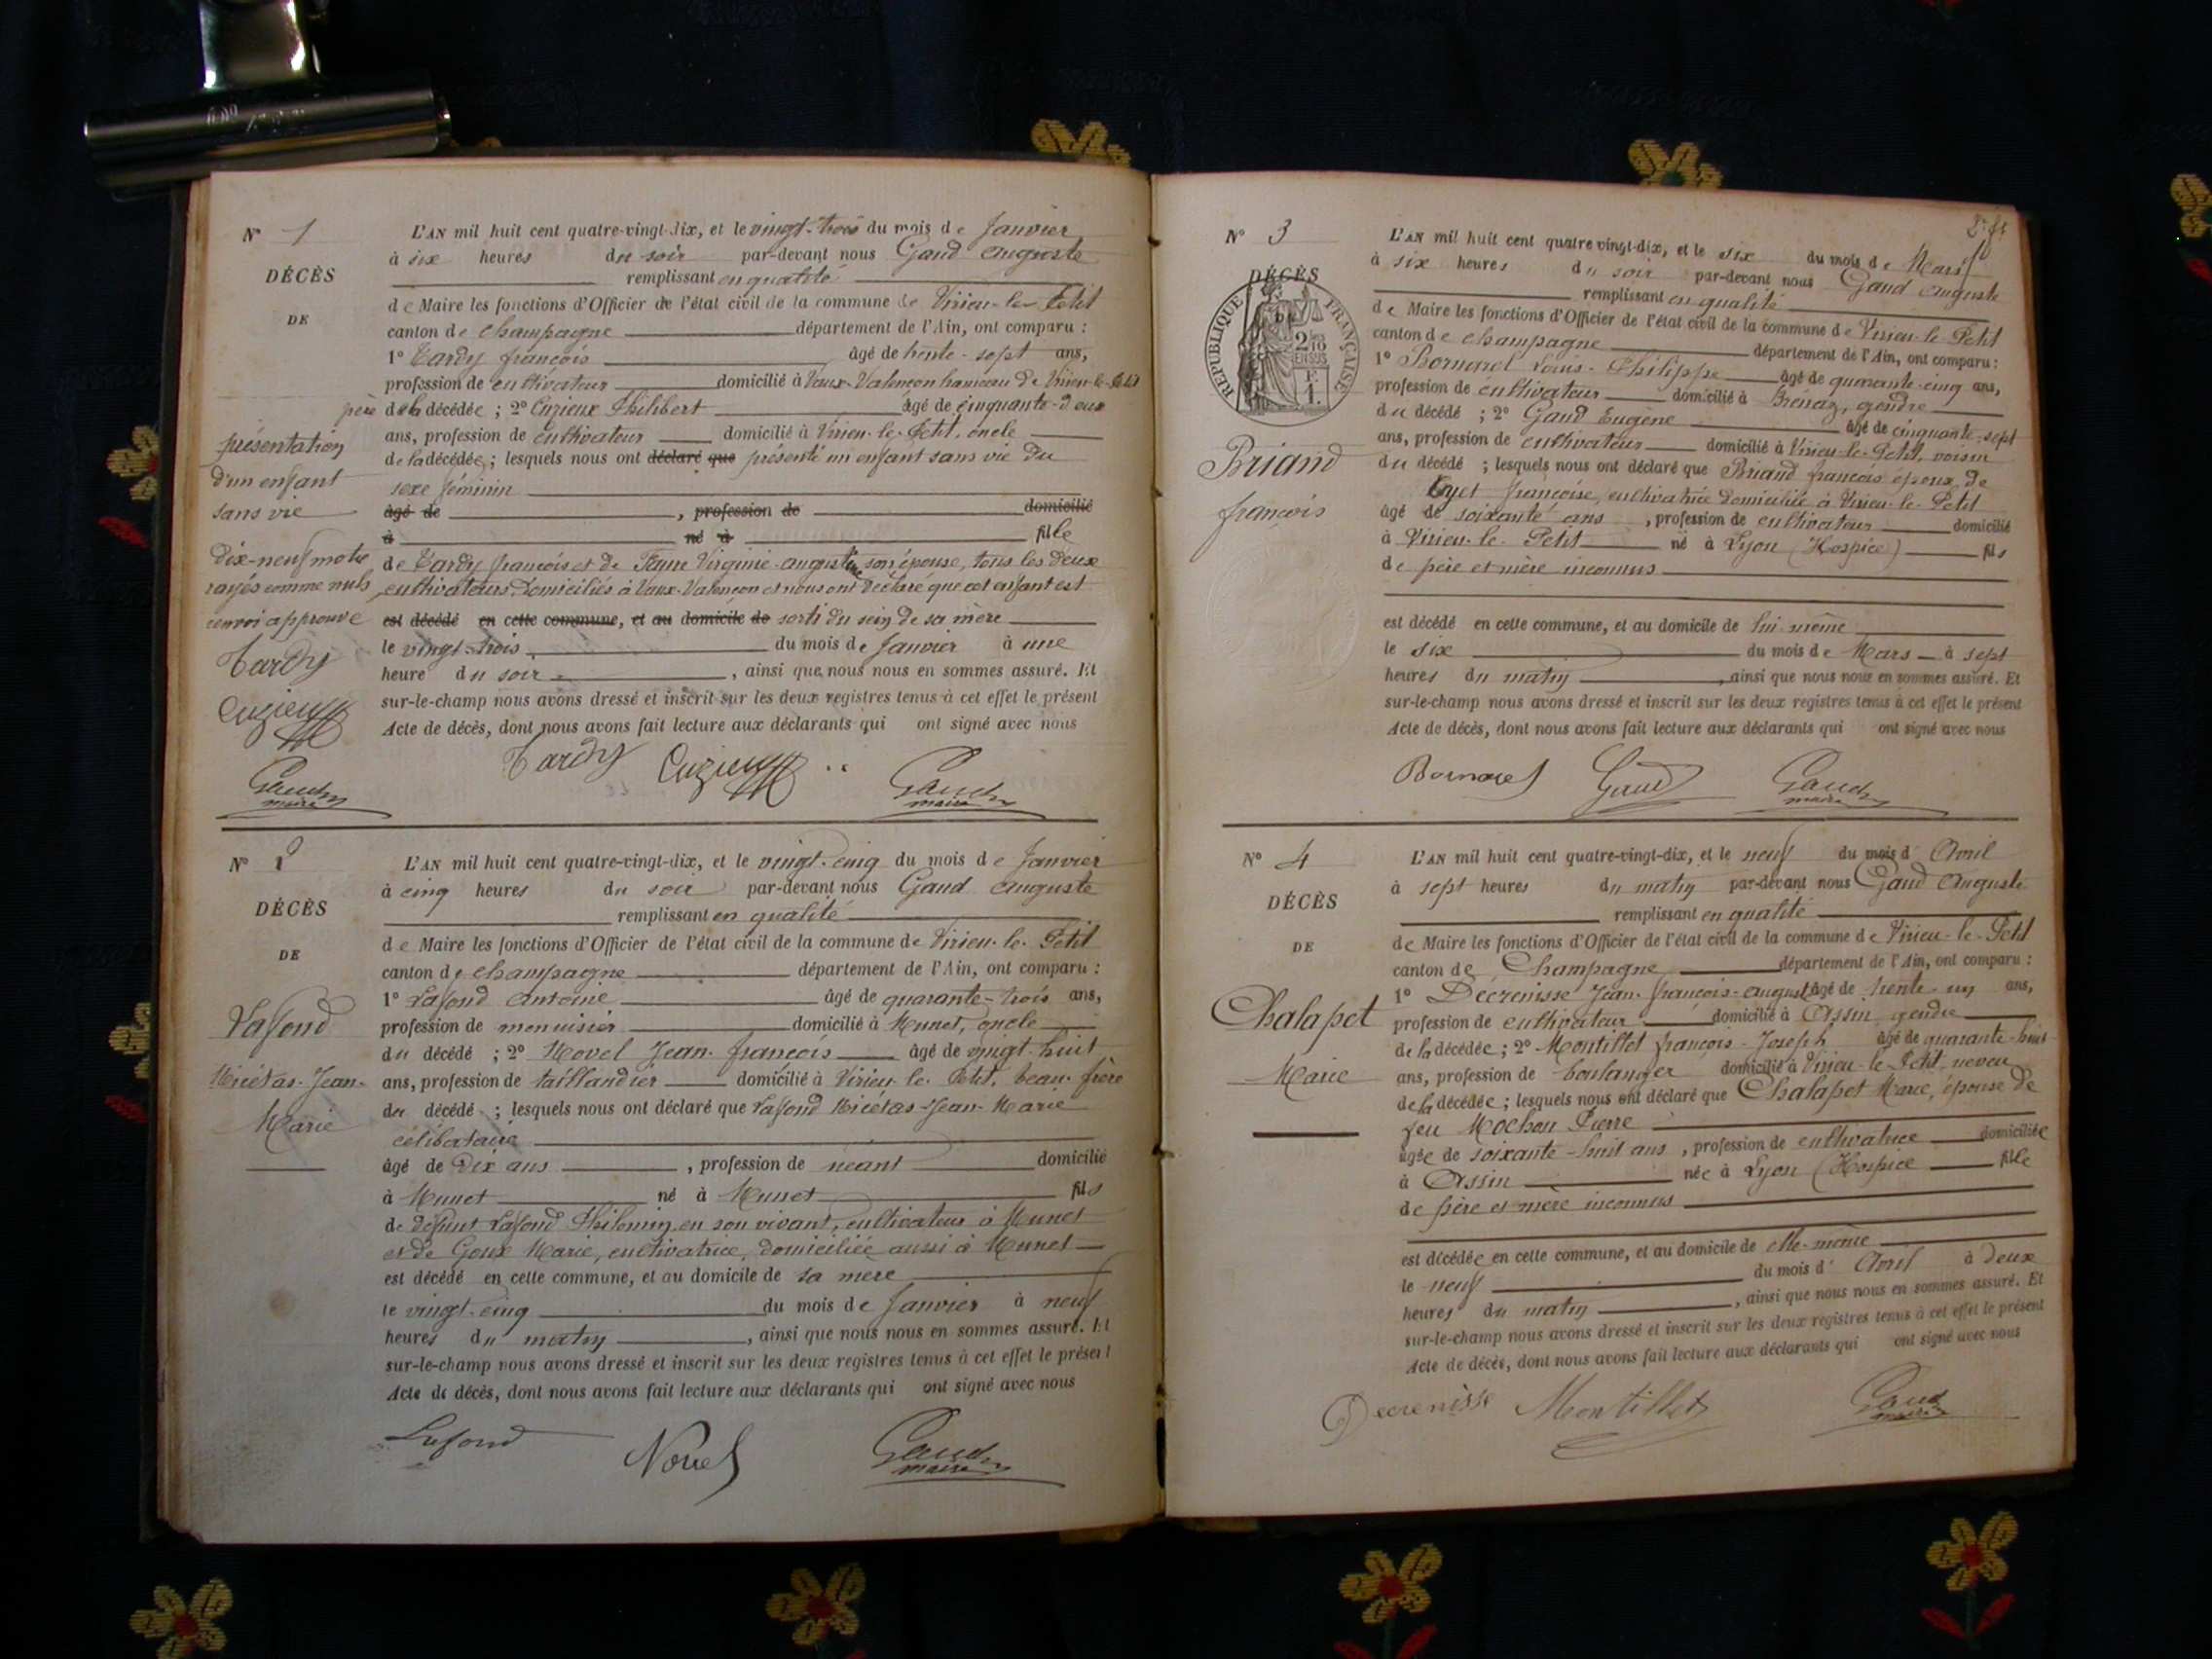 N° 1
DÉCÈS
DE
présentation
d'un enfant
sans vie
dix-neuf mots
rayés comme nuls
renvoi approuvé
Tardy
Cuzieux
Gaud
maire
L'AN mil huit cent quatre-vingt-dix, et le vingt-trois du mois de Janvier
à six heures du soir par-devant nous Gaud Auguste
remplissant en qualité
de Maire les fonctions d'Officier de l'état civil de la commune de Virieu-le-Petit
canton de Champagne département de l'Ain, ont comparu :
1° Tardy françois âgé de trente-sept ans,
profession de cultivateur domicilié à Vaux-Valençon hameau de Virieu-le-Petit
père de la décédée ; 2° Cuzieux Philibert âgé de cinquante-deux
ans, profession de cultivateur domicilié à Virieu-le-Petit, oncle
de la décédée ; lesquels nous ont déclaré que présenté un enfant sans vie du
sexe féminin
âgé de , profession de domicilié
à né à fille
de Tardy françois et de Virginie-augustine son épouse, tous les deux
cultivateurs domiciliés à Vaux-Valençon et nous ont déclaré que cet enfant est
est décédé en cette commune, et au domicile de sorti du sein de sa mère
le vingt-trois du mois de Janvier à une
heure du soir , ainsi que nous nous en sommes assuré. Et
sur-le-champ nous avons dressé et inscrit sur les deux registres tenus à cet effet le présent
Acte de décès, dont nous avons fait lecture aux déclarants qui ont signé avec nous
Tardy Cuzieux Gaud
maire
N° 2
DÉCÈS
DE
Lafond
Nicétas-Jean-
Marie
L'AN mil huit cent quatre-vingt-dix, et le vingt-cinq du mois de Janvier
à cinq heures du soir par-devant nous Gaud Auguste
remplissant en qualité
de Maire les fonctions d'Officier de l'état civil de la commune de Virieu-le-Petit
canton de Champagne département de l'Ain, ont comparu :
1° Lafond Antoine âgé de quarante-trois ans,
profession de menuisier domicilié à Munet, oncle
du décédé ; 2° Novel Jean-françois âgé de vingt-huit
ans, profession de taillandier domicilié à Virieu-le-Petit, beau-frère
du décédé ; lesquels nous ont déclaré que Lafond Nicétas-Jean-Marie
célibataire
âgé de dix ans , profession de néant domicilié
à Munet né à Munet fils
de défunt Lafond Philomin, en son vivant, cultivateur à Munet
et de Goux Marie, cultivatrice, domiciliée aussi à Munet
est décédé en cette commune, et au domicile de sa mère
le vingt-cinq du mois de Janvier à neuf
heures du matin , ainsi que nous nous en sommes assuré. Et
sur-le-champ nous avons dressé et inscrit sur les deux registres tenus à cet effet le présent
Acte de décès, dont nous avons fait lecture aux déclarants qui ont signé avec nous
Lafond Novel Gaud
maire
N° 3
DÉCÈS
RÉPUBLIQUE FRANÇAISE
2/10
EN SUS
Briand
françois
L'AN mil huit cent quatre vingt-dix, et le six du mois de Mars
à six heures du soir par-devant nous Gaud Auguste
remplissant en qualité
de Maire les fonctions d'Officier de l'état civil de la commune de Virieu-le-Petit
canton de Champagne département de l'Ain, ont comparu :
1° Bornarel Louis-Philippe âgé de quarante-cinq ans,
profession de cultivateur domicilié à Brenaz, gendre
du décédé ; 2° Gaud Eugène âgé de cinquante-sept
ans, profession de cultivateur domicilié à Virieu-le-Petit, voisin
du décédé ; lesquels nous ont déclaré que Briand françois époux de
françoise, cultivatrice domiciliée à Virieu-le-Petit
âgé de soixante ans , profession de cultivateur domicilié
à Virieu-le-Petit né à Lyon (Hospice) fils
de père et mère inconnus
est décédé en cette commune, et au domicile de lui-même
le six du mois de Mars à sept
heures du matin , ainsi que nous nous en sommes assuré. Et
sur-le-champ nous avons dressé et inscrit sur les deux registres tenus à cet effet le présent
Acte de décès, dont nous avons fait lecture aux déclarants qui ont signé avec nous
Bornarel Gaud Gaud
maire
N° 4
DÉCÈS
DE
Chalapet
Marie
L'AN mil huit cent quatre-vingt-dix, et le neuf du mois d'Avril
à sept heures du matin par-devant nous Gaud Auguste
remplissant en qualité
de Maire les fonctions d'Officier de l'état civil de la commune de Virieu-le-Petit
canton de Champagne département de l'Ain, ont comparu :
1° Décrenisse Jean-françois-august âgé de trente un ans,
profession de cultivateur domicilié à Assin gendre
de la décédée ; 2° Montillet françois-Joseph âgé de quarante-huit
ans, profession de boulanger domicilié à Virieu-le-Petit, neveu
de la décédée ; lesquels nous ont déclaré que Chalapet Marie, épouse de
feu Mochon Pierre
âgée de soixante-huit ans , profession de cultivatrice domiciliée
à Assin née à Lyon (Hospice fille
de père et mère inconnus
est décédée en cette commune, et au domicile de elle-même
le neuf du mois d'Avril à deux
heures du matin , ainsi que nous nous en sommes assuré. Et
sur-le-champ nous avons dressé et inscrit sur les deux registres tenus à cet effet le présent
Acte de décès, dont nous avons fait lecture aux déclarants qui ont signé avec nous
Decrenisse Montillet Gaud
maire